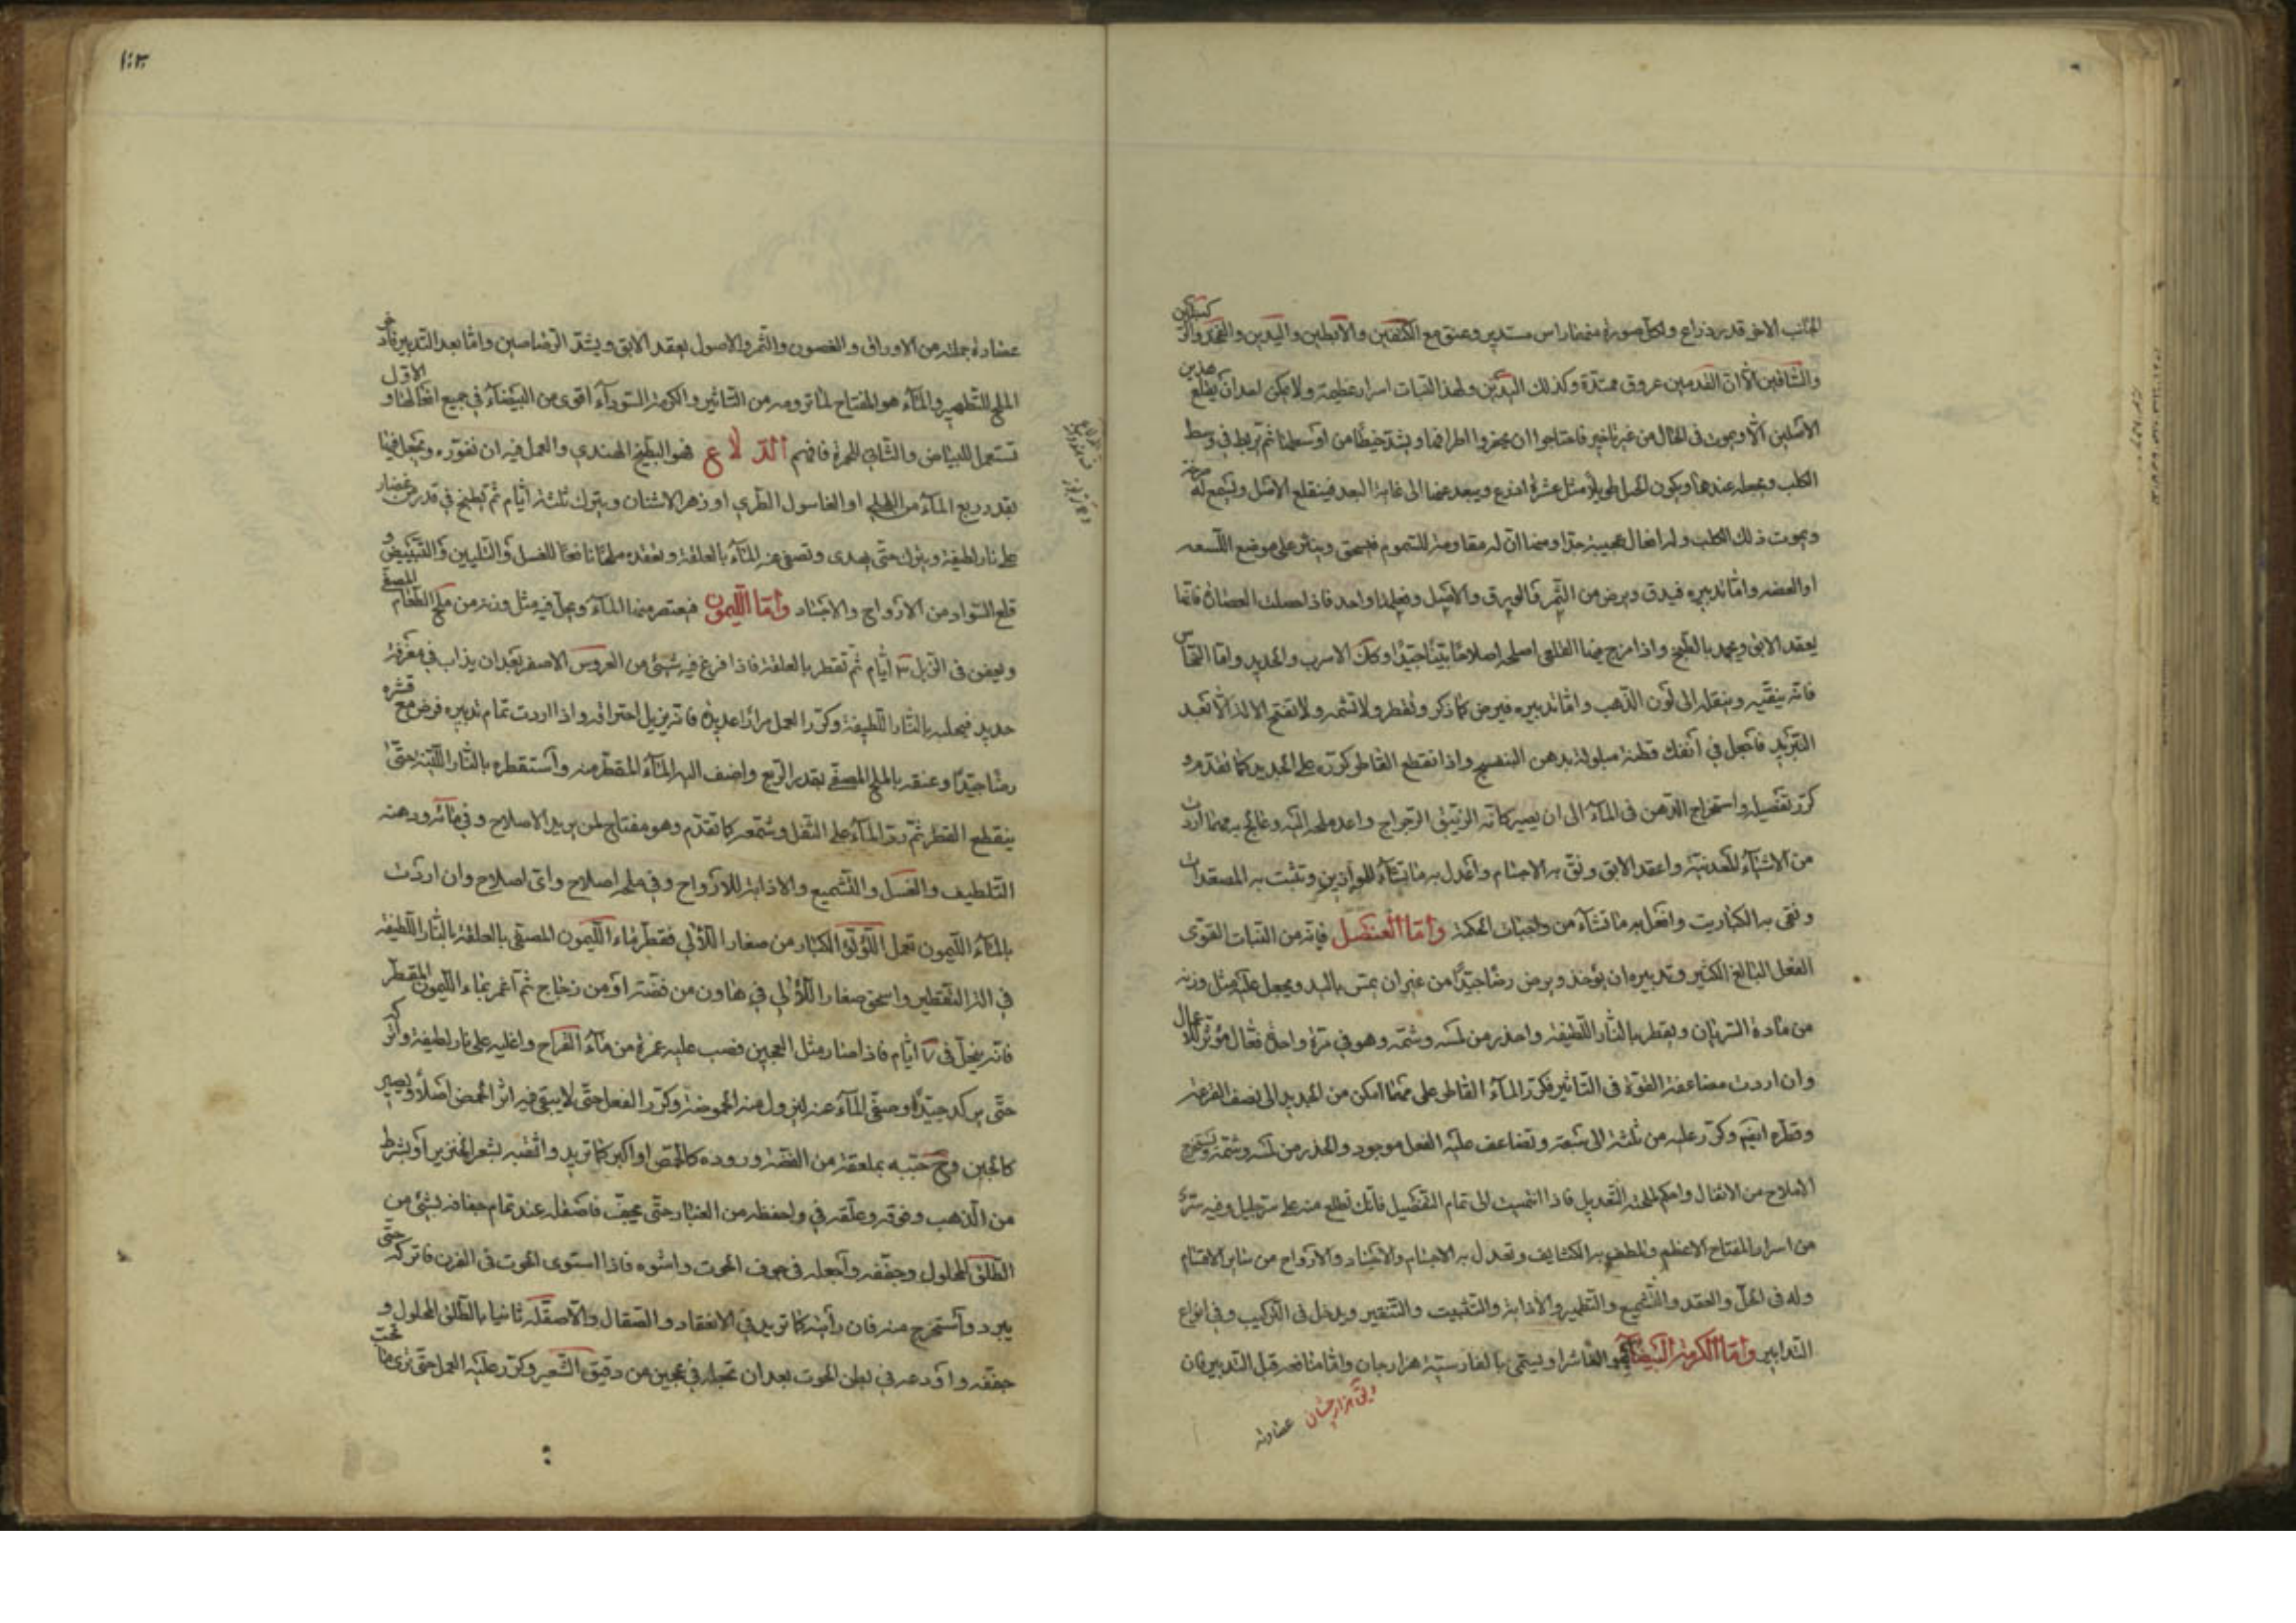 الجانب الاخر قدر ذراع ولكل صورة منهما راس مستدير وعنق مع الكتفين والابطين واليدين والفخذ والركبتين
والساقين الا ان القدمين عروق ممتدة وكذلك اليدين ولهذا النبات اسرار عظيمة ولا يمكن لعد ان يقلع هذين
الاصلين الا ويموت فى الحال من غير تاخير فاحتاجوا ان يحفروا اطرافهما ويشد خيطا من اوسطهما ثم يربط فى وسط
الكلب ويجعله عندهما ويكون الحبل طويلا مثل عشرة اذرع ويبعد عنها الى غاية البعد فينقلع الاصل ويسمع له
ويموت ذلك الكلب وله افعال عجيبة جدا ومنها ان له مقاومة للسموم فيسحق وينثر على موضع اللسعه
او العضه واما تدبيره فيدق ويرض من الثمر والورق والاصل ويجعلها واحد فاذا حصلت العصارة فانها
يعقد الابق ويجمد بالطبخ واذا مزج بها القلعى اصلحه اصلاحا بينا جيدا وكذلك الاسرب والحديد واما النحاس
فانه ينقيه وينقله الى لون الذهب واما تدبيره فيرض كما ذكر وتقطر ولا تشمه ولا تفتح الالة الا بعد
التبريد فاجعل فى انفك قطنة مبلولة بدهن البنفسج واذا انقطع القاطر كرره على الجديد كما تقدم و
كرر تفصيله واستخراج الدهن فى الماء الى ان يصير كانه الزيتى الرجراج واعد ملحه اليه وعالج به مهما اردت
من الاشياء المعدنية واعقد الابق ونق به الاجسام واعدل به ما تشاء للموازين وتثبت به المصعدات
ونقى به الكباريت وافعل به ما تشاء من واجبات الحكمة واما العنصل فانه من النبات القوى
الفعل البالغ الكثير وتدبيره ان يؤخذ ويرض رضا جيدا من غير ان يمس باليد ويجعل عليه مثل وزنه
من مادة السريان ويقطر بالنار اللطيفة واحذر من لمسه وشمه وهو فى مرة واحدة فعال مؤثر للاعمال
وان اردت مضاعفة القوة فى التاثير فكرر الماء القاطر على مهما امكن من الجديد الى نصف القرعة
وقطره ايضا وكرر عليه من ثلثة الى سبعة وتضاعف عليه الفعل موجود والحذر من لمسه وشمه وتستخرج
الاملاح من الاثقال واحكم لملحه التعديل فاذا انتهيت الى تمام التفصيل فانك تطلع منه على سر جليل وفيه سر
من اسرار المفتاح الاعظم وتلطف به الكثايف وتعدل به الاجسام والاجساد والارواح من ساير الاقسام
وله فى الحل والعقد والتشميع والتطهير والاذابة والتثبيت والتنقير ويدخل فى التركيب وفى انواع
التدابير واما الكرمة البيضاء فهو الفاشرا ويسمى بالفارسية هزارجان واما منافعه قبل التدبير فان
هزارجشان عصارته
١٠٣
عصارة جملته من الاوراق والغصون والثمر والاصول يعقد الابق ويشد الرصاصين واما بعد التدبير فان
الملح للتطهير والماء هو المفتاح لما ترومه من التاثير والكرمة السوداء اقوى من البيضاء فى جميع افعالها و الاول
تستعمل للبياض والثانى للحمرة فافهم الدلاع فهو البطيخ الهندي والعمل فيه ان تقوره ويجعل فيها
بقدر ربع الماء من القلى او الغاسول الطري او زهر الاشنان ويترك ثلثة ايام ثم يطبخ فى قدر من غضار
على نار لطيفة ويترك حتى يهدى وتصفى عنه الماء بالعلقة وتعقده ملحا نافعا للغسل والتليين والتبييض و
قلع السواد من الارواح والاجساد واما الليمون فيعتصر منها الماء ويحل فيه مثل وزنه من ملح الطعام المصفى
ويعفن فى الزبل ٣ ايام ثم تقطر بالعلقة فاذا فرغ فيه شئ من العروس الاصفر بعد ان يذاب فى مغرفة
حديد فيحله بالنار اللطيفة وكرر العمل مرارا عديدة فانه يزيل احتراقه واذا اردت تمام تدبيره فرض مع قشره
رضا جيدا وعفنه بالملح المصفى بقدر الربع واضف اليه الماء المقطر منه واستقطره بالنار اللينة حتى
ينقطع القطر ثم رد الماء على الثفل وشمعه كما تقدم وهو مفتاح لمن يريد الاصلاح وفى مائه ودهنه
التلطيف والغسل والتشميع والاذابة للارواح وفى ملحه اصلاح واى اصلاح وان اردت
بالماء الليمون تعمل اللؤلؤ الكبار من صغار اللآلى فقطر ماء الليمون المصفى بالعلقة بالنار اللطيفة
فى الة التقطير واسحق صغار اللآلى فى هاون من فضة او من زجاج ثم اغمر بماء الليمون المقطر
فانه ينحل فى ٧ ايام فاذا صار مثل العجين فصب عليه غمرة من ماء القراح واغليه على نار لطيفة واتركه
حتى يركد جيدا وصفى الماء عنه لتزول منه الحموضة وكرر الفعل حتى لا يبقى فيه اثر الحمض اصلا ويصير
كالجبن وح حببه بملعقة من الفضة ودوره كالحمص او اكبر كما تريد واثقبه بشعر الخنزير او بشرط
من الذهب وفوقه وعلقه فى واحفظه من الغبار حتى يجف فاصقله عند تمام جفافه بشئ من
الطلق المحلول وجففه واجعله فى جوف الحوت واشوه فاذا استوى الحوت فى الفرن فاتركه حتى
يبرد واستخرجه منه فان رايته كما تريد فى الانعقاد والصقال والا صقله ثانيا بالطلق المحلول و
جففه واودعه فى بطن الحوت بعد ان تجعله فى عجين من دقيق الشعير وكرر عليه العمل حتى ترى ما تحب